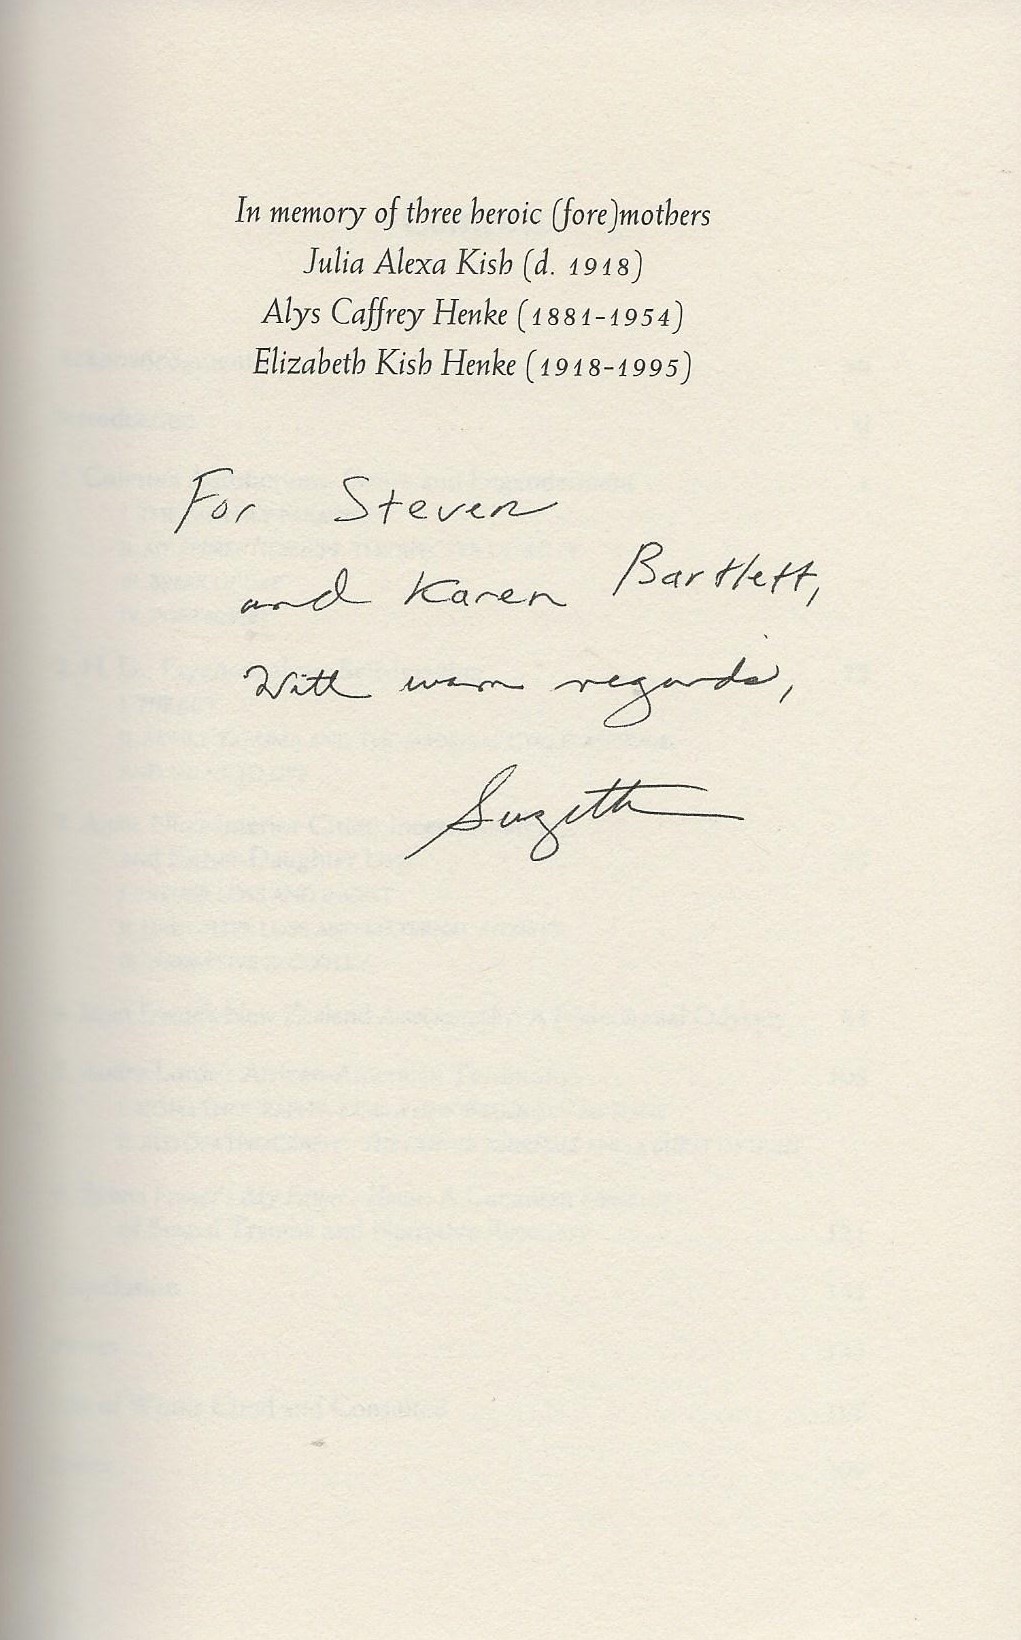 In memory of three heroic (fore)mothers
Julia Alexa Kish (d. 1918)
Alys Caffrey Henke (1881-1954)
Elizabeth Kish Henke (1918-1995)
For Steven
and Karen Bartlett,
With warm regards,
Suzette